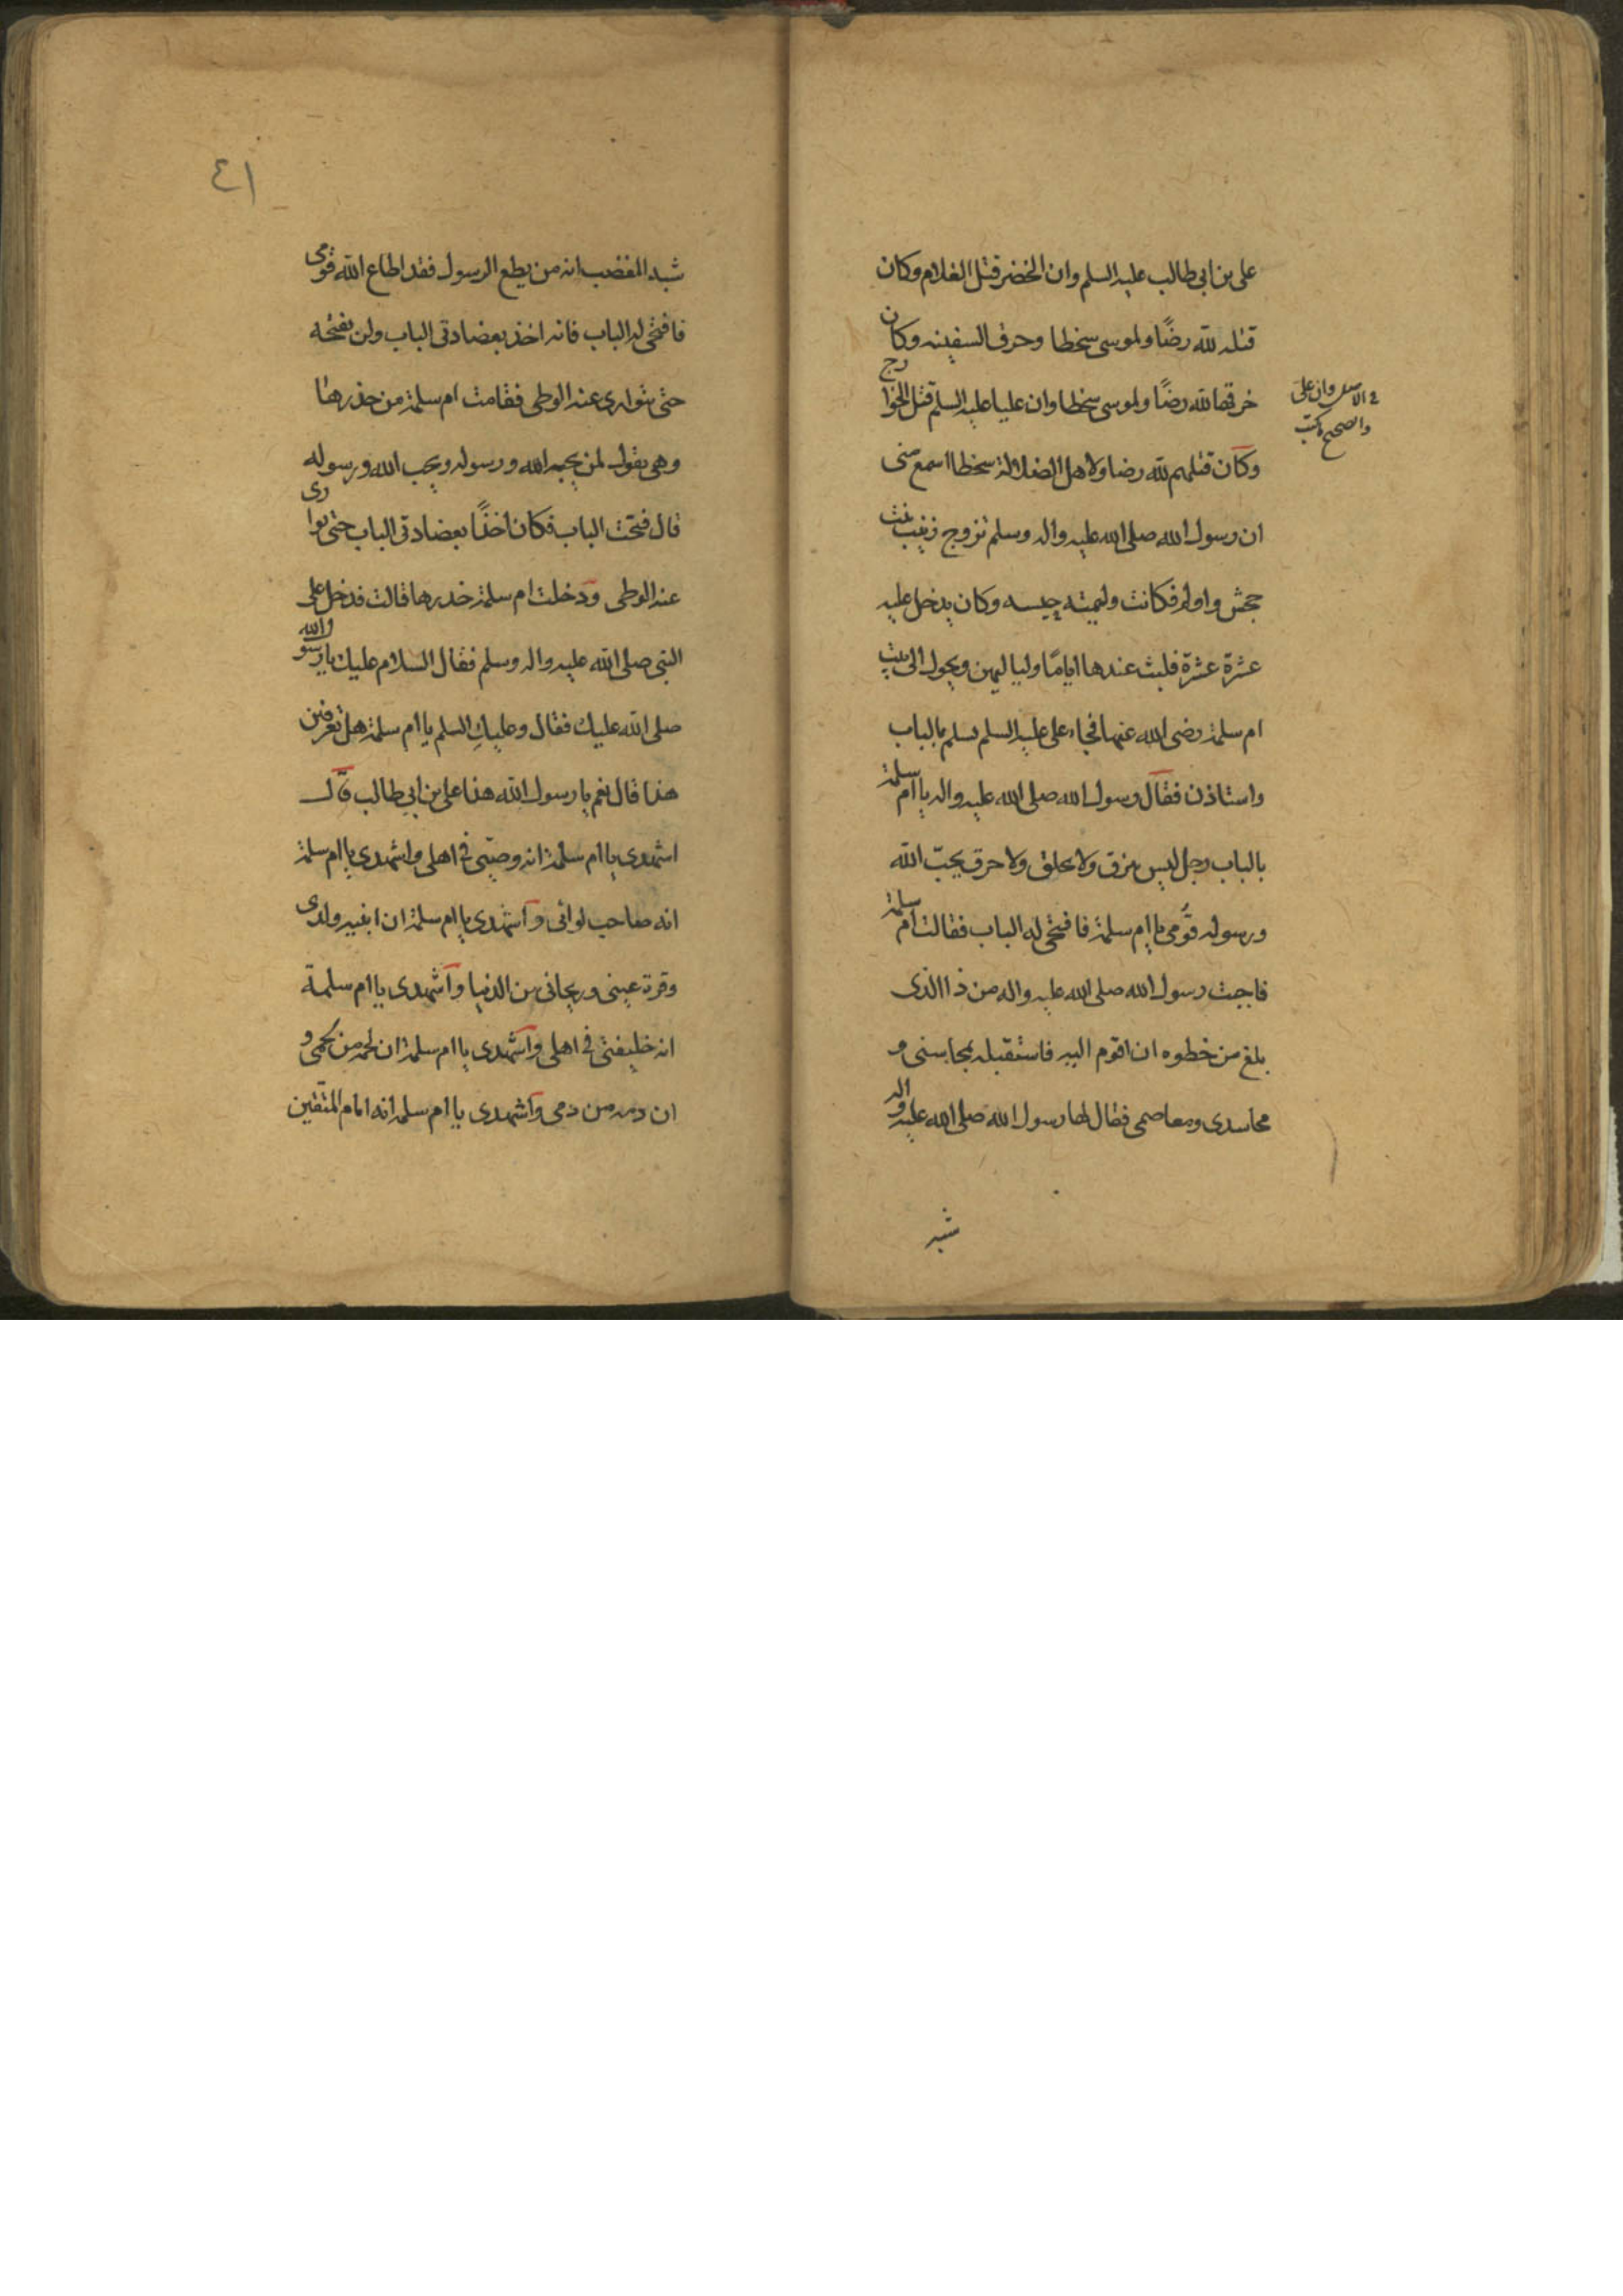 على بن ابى طالب عليه السلم وان الخضر قتل الغلام وكان
قتله لله رضًا ولموسى سخطا وخرق السفينه وكان
خرقها لله رضًا ولموسى سخطا وان عليا عليه السلم قتل الخوارج
وكان قتلهم لله رضا ولاهل الضلالة سخطا اسمع منى
ان رسول الله صلى الله عليه واله وسلم تزوج زينب بنت
جحش واولم فكانت وليمته حيسه وكان يدخل عليه
عشرة عشرة فلبث عندها اياما ولياليهن ويحول الى بيت
ام سلمة رضى الله عنها فجاء على عليه السلم فسلم بالباب
واستاذن فقال رسول الله صلى الله عليه واله يا ام سلمة
بالباب رجل ليس بنزق ولا بحرق يحبّ الله
ورسوله قومى يا ام سلمة فافتحى له الباب فقالت ام سلمة
فاجبت رسول الله صلى الله عليه واله من ذا الذى
بلغ من خطره ان اقوم اليه فاستقبله بمحاسنى و
ومعاصمى فقال لها رسول الله صلى الله عليه واله
وان على
والصحيح
شبه
٤١
شبه المغضب انه من يطع الرسول فقد اطاع الله قومى
فافتحى له الباب فانه اخذ بعضادتى الباب ولن يفتحه
حتى يتوارى عنه الوطى فقامت ام سلمة من خدرها
وهى تقول لمن يحبه الله ورسوله ويحب الله ورسوله
قال فتحت الباب فكان اخذًا بعضادتى الباب حتى توارى
عنه الوطى ودخلت ام سلمة خدرها قالت فدخل على
النبى صلى الله عليه واله وسلم فقال السلام عليك يا رسول الله
صلى الله عليك فقال وعليك السلم يا ام سلمة هل تعرفين
هذا قال نعم يا رسول الله هذا على بن ابى طالب قال
اشهدى يا ام سلمة انه وصيّى فى اهلى واشهدى يا ام سلمة
انه صاحب لوائى واشهدى يا ام سلمة ان ابنيه ولدى
وقرة عينى وريحانى من الدنيا واشهدى يا ام سلمة
انه خليفتى فى اهلى واشهدى يا ام سلمة ان لحمه من لحمى و
ان دمه من دمى واشهدى يا ام سلمه انه امام المتّقين